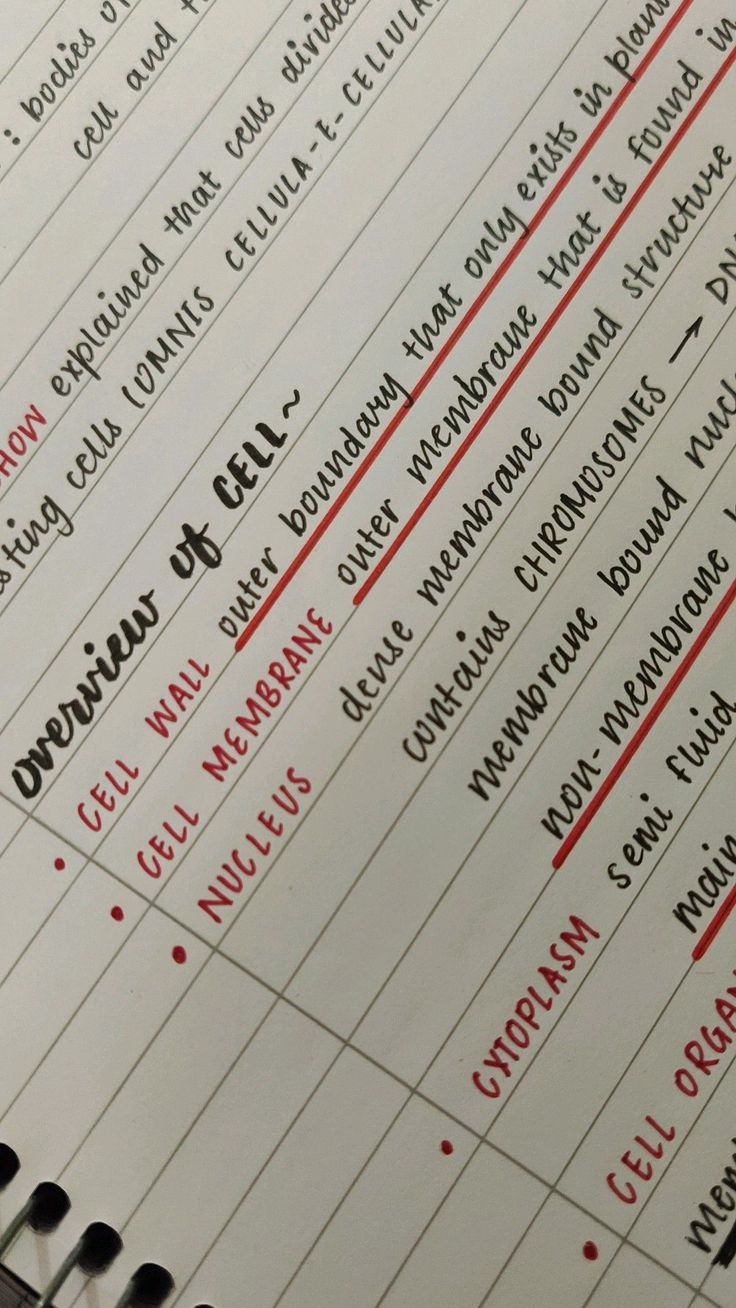 : bodies
cell and
HOW explained that cells divide
sting cells (OMNIS CELLULA-E-CELLULA
overview of CELL~
• CELL WALL outer boundary that only exists in plan
• CELL MEMBRANE outer membrane that is found in
• NUCLEUS dense membrane bound structure
contains CHROMOSOMES → DN
membrane bound nucl
non-membrane
• CYTOPLASM semi fluid
main
• CELL ORGAN
mem